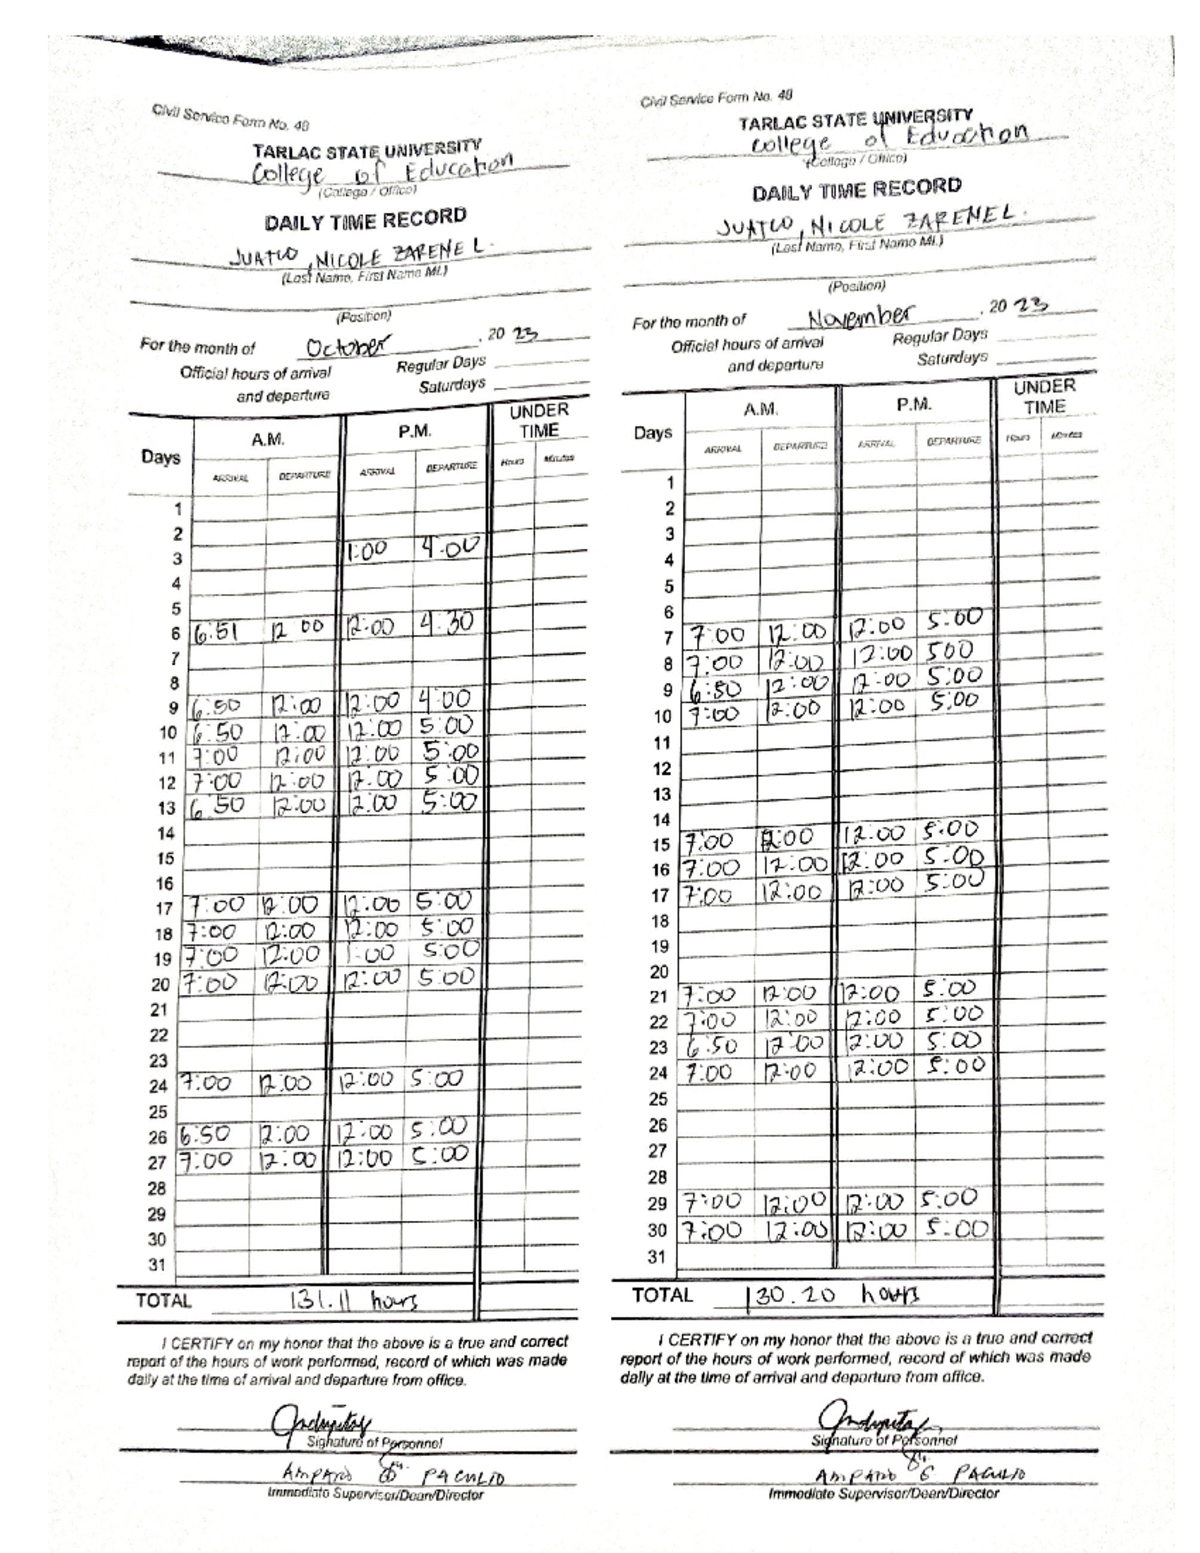 Civil Service Form No. 48
TARLAC STATE UNIVERSITY
College of Education
(College / Office)
DAILY TIME RECORD
JUATCO, NICOLE ZARENE L.
(Last Name, First Name MI.)
(Position)
For the month of October, 20 23
Official hours of arrival Regular Days
and departure Saturdays
Days A.M. P.M. UNDER TIME
ARRIVAL DEPARTURE ARRIVAL DEPARTURE Hours Minutes
1
2
3 1:00 4:00
4
5
6 6:51 12 00 12:00 4:30
7
8
9 6:50 12:00 12:00 4:00
10 6:50 12:00 12:00 5:00
11 7:00 12:00 12:00 5:00
12 7:00 12:00 12:00 5:00
13 6:50 12:00 12:00 5:00
14
15
16
17 7:00 12:00 12:00 5:00
18 7:00 12:00 12:00 5:00
19 7:00 12:00 1:00 5:00
20 7:00 12:00 12:00 5:00
21
22
23
24 7:00 12:00 12:00 5:00
25
26 6:50 12:00 12:00 5:00
27 7:00 12:00 12:00 5:00
28
29
30
31
TOTAL 131.11 hours
I CERTIFY on my honor that the above is a true and correct
report of the hours of work performed, record of which was made
daily at the time of arrival and departure from office.
Signature of Personnel
AMPARO PACULIO
Immediate Supervisor/Dean/Director
Civil Service Form No. 48
TARLAC STATE UNIVERSITY
College of Education
(College / Office)
DAILY TIME RECORD
JUATCO, NICOLE ZARENE L.
(Last Name, First Name MI.)
(Position)
For the month of November, 20 23
Official hours of arrival Regular Days
and departure Saturdays
Days A.M. P.M. UNDER TIME
ARRIVAL DEPARTURE ARRIVAL DEPARTURE Hours Minutes
1
2
3
4
5
6
7 7:00 12:00 12:00 5:00
8 7:00 12:00 12:00 5 00
9 6:50 12:00 12:00 5:00
10 7:00 12:00 12:00 5:00
11
12
13
14
15 7:00 12:00 12:00 5:00
16 7:00 12:00 12:00 5:00
17 7:00 12:00 12:00 5:00
18
19
20
21 7:00 12:00 12:00 5:00
22 7:00 12:00 12:00 5:00
23 6:50 12:00 12:00 5:00
24 7:00 12:00 12:00 5:00
25
26
27
28
29 7:00 12:00 12:00 5:00
30 7:00 12:00 12:00 5:00
31
TOTAL 130.20 hours
I CERTIFY on my honor that the above is a true and correct
report of the hours of work performed, record of which was made
daily at the time of arrival and departure from office.
Signature of Personnel
AMPARO PACULIO
Immediate Supervisor/Dean/Director